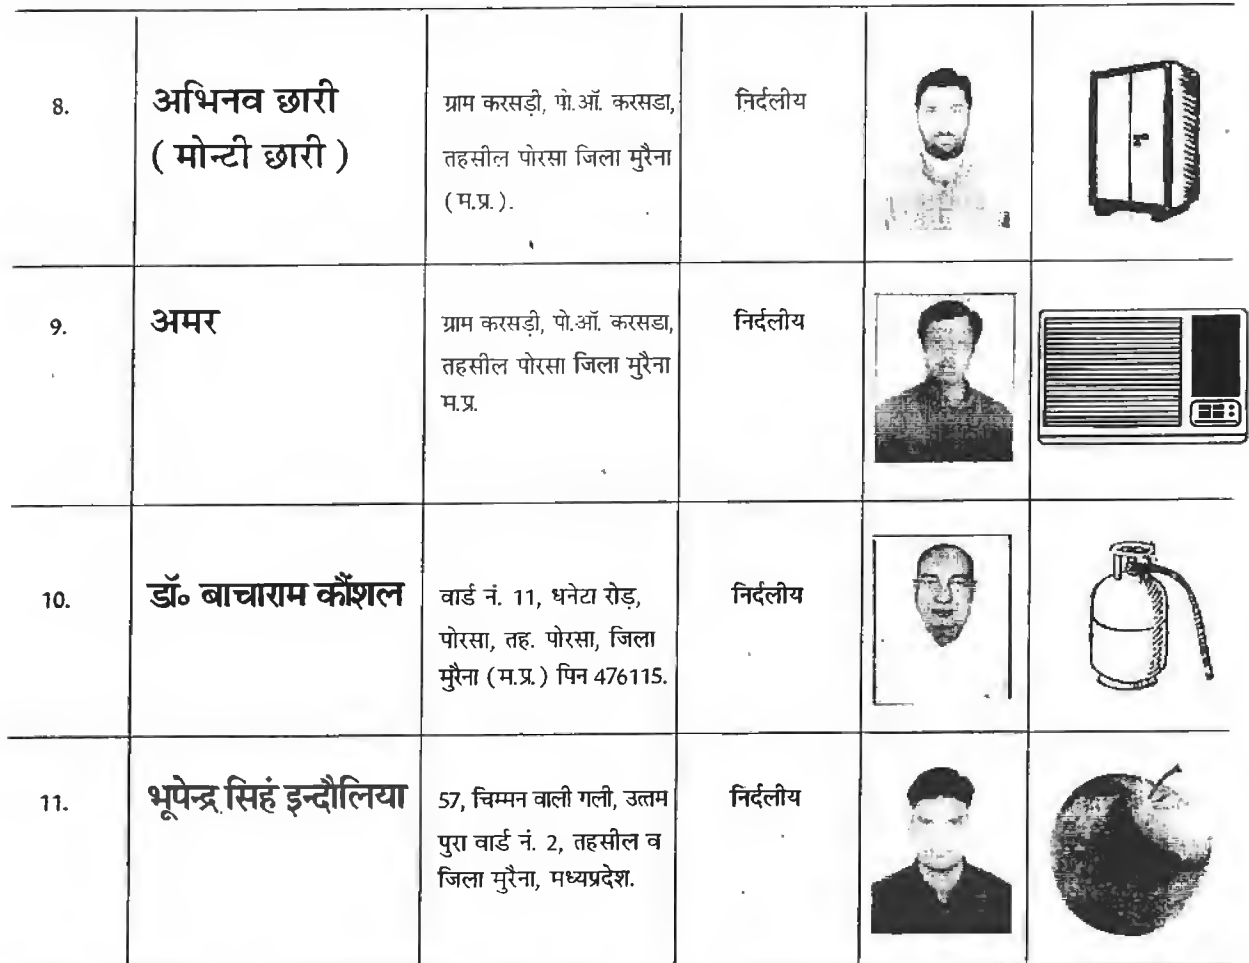 8.
अभिनव छारी
( मोन्टी छारी )
ग्राम करसड़ी, पो.ऑ. करसडा,
तहसील पोरसा जिला मुरैना
( म.प्र. ).
निर्दलीय
9.
अमर
ग्राम करसड़ी, पो.ऑ. करसडा,
तहसील पोरसा जिला मुरैना
म.प्र.
निर्दलीय
10.
डॉ॰ बाचाराम कौंशल
वार्ड नं. 11, धनेटा रोड़,
पोरसा, तह. पोरसा, जिला
मुरैना ( म.प्र. ) पिन 476115.
निर्दलीय
11.
भूपेन्द्र सिहं इन्दौलिया
57, चिम्मन वाली गली, उत्तम
पुरा वार्ड नं. 2, तहसील व
जिला मुरैना, मध्यप्रदेश.
निर्दलीय